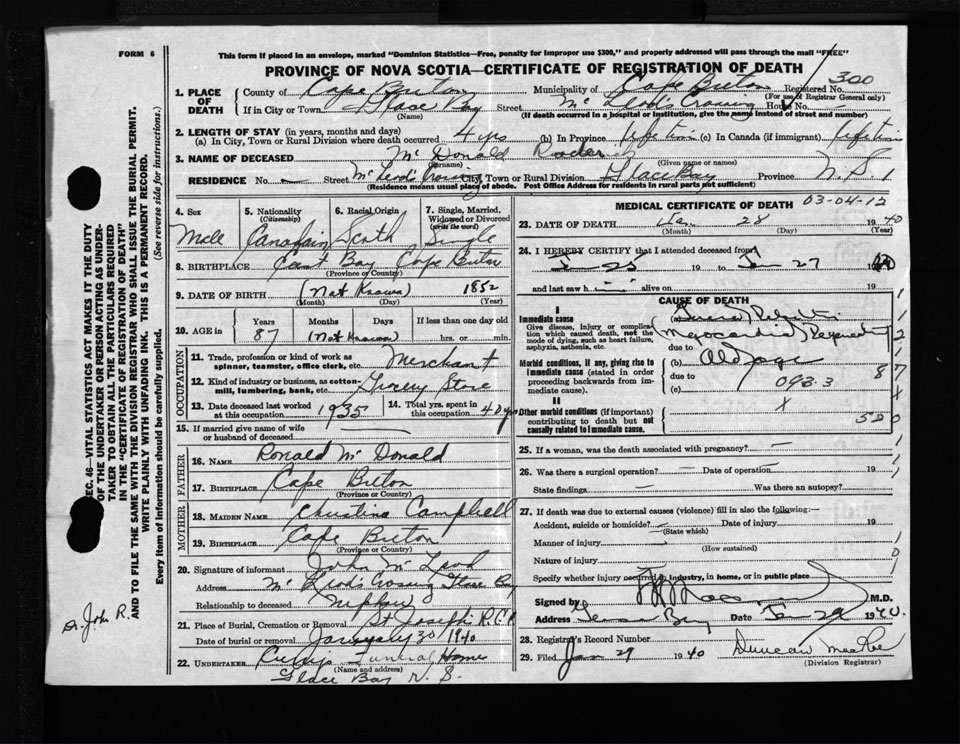 FORM 6
This form if placed in an envelope, marked "Dominion Statistics—Free, penalty for improper use $300," and properly addressed will pass through the mail "FREE"
PROVINCE OF NOVA SCOTIA—CERTIFICATE OF REGISTRATION OF DEATH
300
1. PLACE OF DEATH
County of Cape Breton Municipality of Cape Breton Registered No.
(For use of Registrar General only)
If in City or Town Glace Bay Street Mc Leod's Crossing House No.
(Name) (If death occurred in a hospital or institution, give the name instead of street and number)
2. LENGTH OF STAY (in years, months and days)
(a) In City, Town or Rural Division where death occurred 4 yrs (b) In Province lifetime (c) In Canada (if immigrant) lifetime
3. NAME OF DECEASED Mc Donald Roderic
(Surname) (Given name or names)
RESIDENCE No. — Street Mc Leod's Crossing City, Town or Rural Division Glace Bay Province N. S.
(Residence means usual place of abode. Post Office Address for residents in rural parts not sufficient)
4. Sex 5. Nationality (Citizenship) 6. Racial Origin 7. Single, Married, Widowed or Divorced (write the word)
Male Canadain Scoth Single
8. BIRTHPLACE East Bay Cape Breton
(Province or Country)
9. DATE OF BIRTH (Not Known) 1852
(Month) (Day) (Year)
10. AGE in Years Months Days If less than one day old
87 (Not Known) hrs. or min.
OCCUPATION
11. Trade, profession or kind of work as spinner, teamster, office clerk, etc. Merchant
12. Kind of industry or business, as cotton-mill, lumbering, bank, etc. Grocery Store
13. Date deceased last worked at this occupation 1935 14. Total yrs. spent in this occupation 40 yrs
15. If married give name of wife or husband of deceased —
FATHER
16. NAME Ronald Mc Donald
17. BIRTHPLACE Cape Breton
(Province or Country)
MOTHER
18. MAIDEN NAME Christina Campbell
19. BIRTHPLACE Cape Breton
(Province or Country)
20. Signature of informant John McLeod
Address Mc Leod's Crossing Glace Bay
Relationship to deceased Nephew
21. Place of Burial, Cremation or Removal St Joseph R.C.
Date of burial or removal January 30 1940
22. UNDERTAKER Curry's Funeral Home
(Name and address)
Glace Bay N. S.
MEDICAL CERTIFICATE OF DEATH 03-04-12
23. DATE OF DEATH Jan 28 1940
(Month) (Day) (Year)
24. I HEREBY CERTIFY that I attended deceased from
Jan 25 19 to Jan 27 19
and last saw h alive on 19
CAUSE OF DEATH
I
Immediate cause
Give disease, injury or complication which caused death, not the mode of dying, such as heart failure, asphyxia, asthenia, etc.
(a)
due to
Morbid conditions, if any, giving rise to immediate cause (stated in order proceeding backwards from immediate cause).
(b) Old age
due to 093.3
(c)
II
Other morbid conditions (if important) contributing to death but not causally related to immediate cause.
X
520
25. If a woman, was the death associated with pregnancy? —
26. Was there a surgical operation? — Date of operation — 19
State findings — Was there an autopsy?
27. If death was due to external causes (violence) fill in also the following:—
Accident, suicide or homicide? — Date of injury 19
(State which)
Manner of injury
(How sustained)
Nature of injury
Specify whether injury occurred in industry, in home, or in public place
Signed by M.D.
Address Glace Bay Date Jan 29 1940.
28. Registrar's Record Number
29. Filed Jan 29 1940 Duncan MacRae
(Division Registrar)
SEC. 46—VITAL STATISTICS ACT MAKES IT THE DUTY
OF THE UNDERTAKER OR PERSON ACTING AS UNDER-
TAKER TO OBTAIN ALL THE PARTICULARS REQUIRED
IN THE "CERTIFICATE OF REGISTRATION OF DEATH"
AND TO FILE THE SAME WITH THE DIVISION REGISTRAR WHO SHALL ISSUE THE BURIAL PERMIT.
WRITE PLAINLY WITH UNFADING INK. THIS IS A PERMANENT RECORD.
Every item of information should be carefully supplied. (See reverse side for instructions.)
Dr. John R.